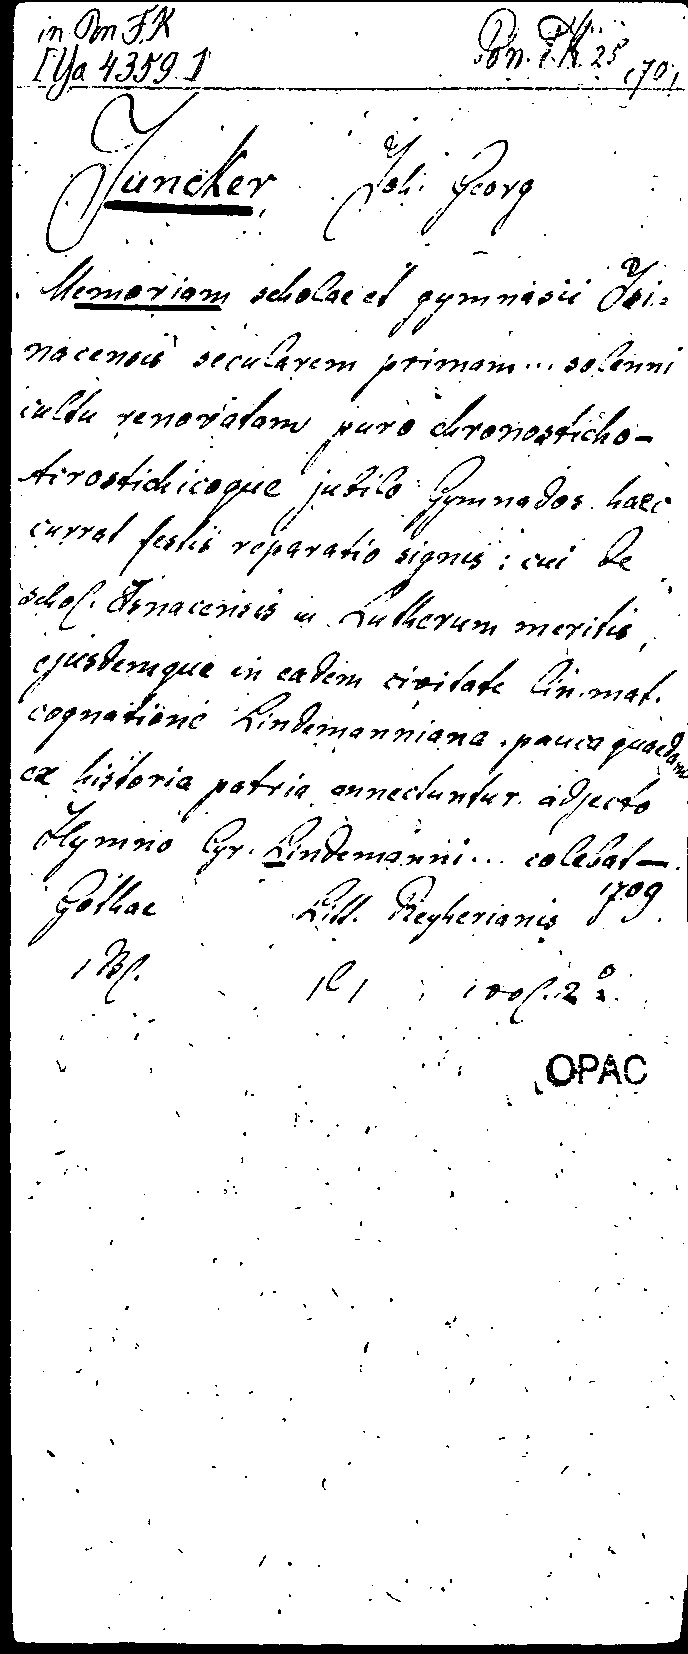 in Pon F.K
[Ya 4359]
Pon. F.K. 25
1701
Juncker, Joh. Georg
Memoriam scholae et gymnasii Isi-
nacensis secularem primam... solenni
cultu renovatam puro chronosticho-
Acrostichicoque jubilo Gymnados haec
currat festis reparatio signis: cui de
schol. Isnacensis in Lutherum meritis,
ejusdemque in eadem civitate lin. mat.
cognatione Lindemanniana pauca quaedam
ex historia patria annectuntur adjecto
Hymno Cyr. Lindemanni... colebat —.
Gothae Litt. Reyherianis 1709
1 Bl. 1 vol. 2°
OPAC